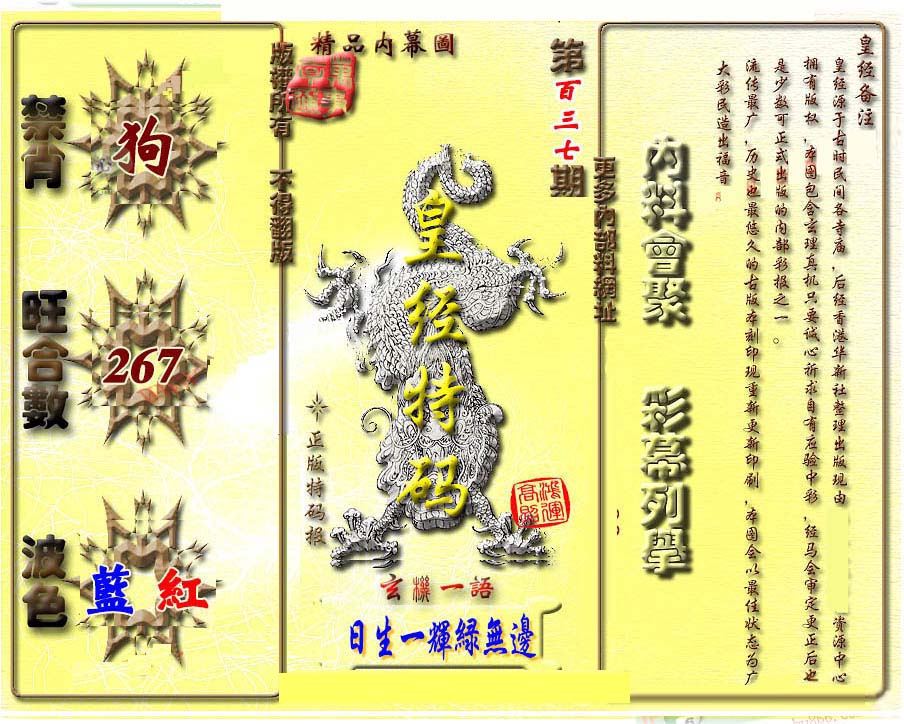 禁肖
狗
旺合數
267
波色
藍 紅
版權所有 不得翻版
精品内幕圖
第百三七期
皇经特码
正版特码报
鴻運高照
玄機一語
日生一輝緑無邊
更多内部料網址
内料會聚
彩幕列舉
皇经备注
皇经源于古时民间各寺庙，后经香港华新社整理出版现由 资源中心
拥有版权，本图包含玄理真机只要诚心祈求自有应验中彩，经马会审定更正后也
是少数可正式出版的内部彩报之一。
流传最广，历史也最悠久的古版本刻印现重新更新印刷，本图会以最佳状态为广
大彩民造出福音